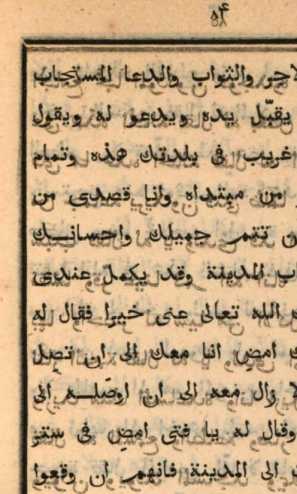 ٥٤
لاجر والثواب والدعا المستجاب
يقبّل يده ويدعو له ويقول
غريب فى بلدتك هذه وتمام
من مبتداه وانا قصدى من
تتم جميلك واحسانك
المدينة وقد يكمل عندى
الله تعالى عنى خيرا فقال له
امض انا معك الى ان تصل
زال معه الى ان اوصله الى
وقال له يا فتى امض فى ستر
الى المدينة فانهم ان وقعوا